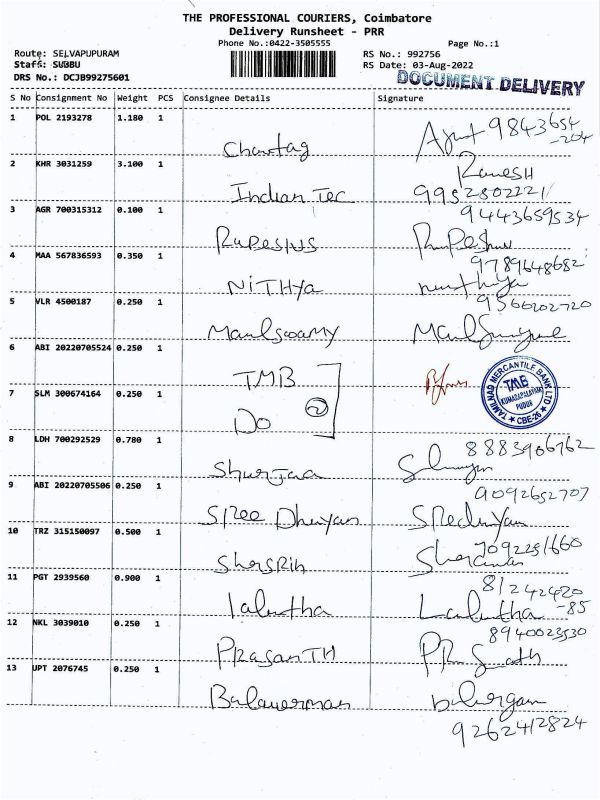 THE PROFESSIONAL COURIERS, Coimbatore
Delivery Runsheet - PRR
Phone No.:0422-3505555
Page No.:1
Route: SELVAPUPURAM
RS No.: 992756
Staff: SUBBU
RS Date: 03-Aug-2022
DRS No.: DCJB99275601
DOCUMENT DELIVERY
S No Consignment No Weight PCS Consignee Details Signature
1 POL 2193278 1.180 1
9843654
-204
2 KHR 3031259 3.100 1
Ramesh
Indian Tec 9952802221
3 AGR 700315312 0.100 1
9443659534
4 MAA 567836593 0.350 1
9789648682
NiTHYa
5 VLR 4500187 0.250 1
9566202720
6 ABI 20220705524 0.250 1
TMB
7 SLM 300674164 0.250 1
Do 2
TAMILNAD MERCANTILE BANK LTD
TMB
PUDUR
CBE-26
8 LDH 700292529 0.780 1
8883906762
9 ABI 20220705506 0.250 1
9092652707
SREE Dhuyan
10 TRZ 315150097 0.500 1
7092251660
11 PGT 2939560 0.900 1
81242420
-85
Lalutha
12 NKL 3039010 0.250 1
8940023530
PRasanTH
13 UPT 2076745 0.250 1
9262412824